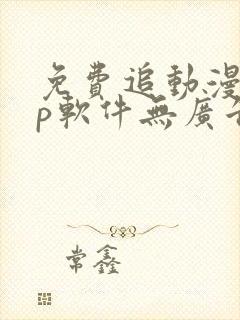 免費追動漫
p軟件無廣告
常鑫